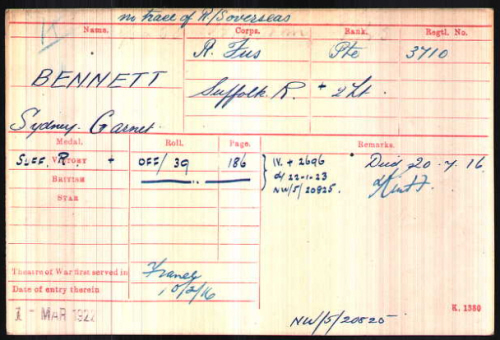 no trace of R/S overseas
Name. Corps. Rank. Regtl. No.
R. Fus Pte 3710
BENNETT
Suffolk R. + 2Lt.
Sydney Garnet.
Medal. Roll. Page. Remarks.
Suff. R. VICTORY + OFF/39 186 IV. + 2696 Died 20.7.16
BRITISH d/ 22-1-23
NW/5/20825.
STAR
Theatre of War first served in France
Date of entry therein 10/2/16
MAR 192
NW/5/20825
K. 1380